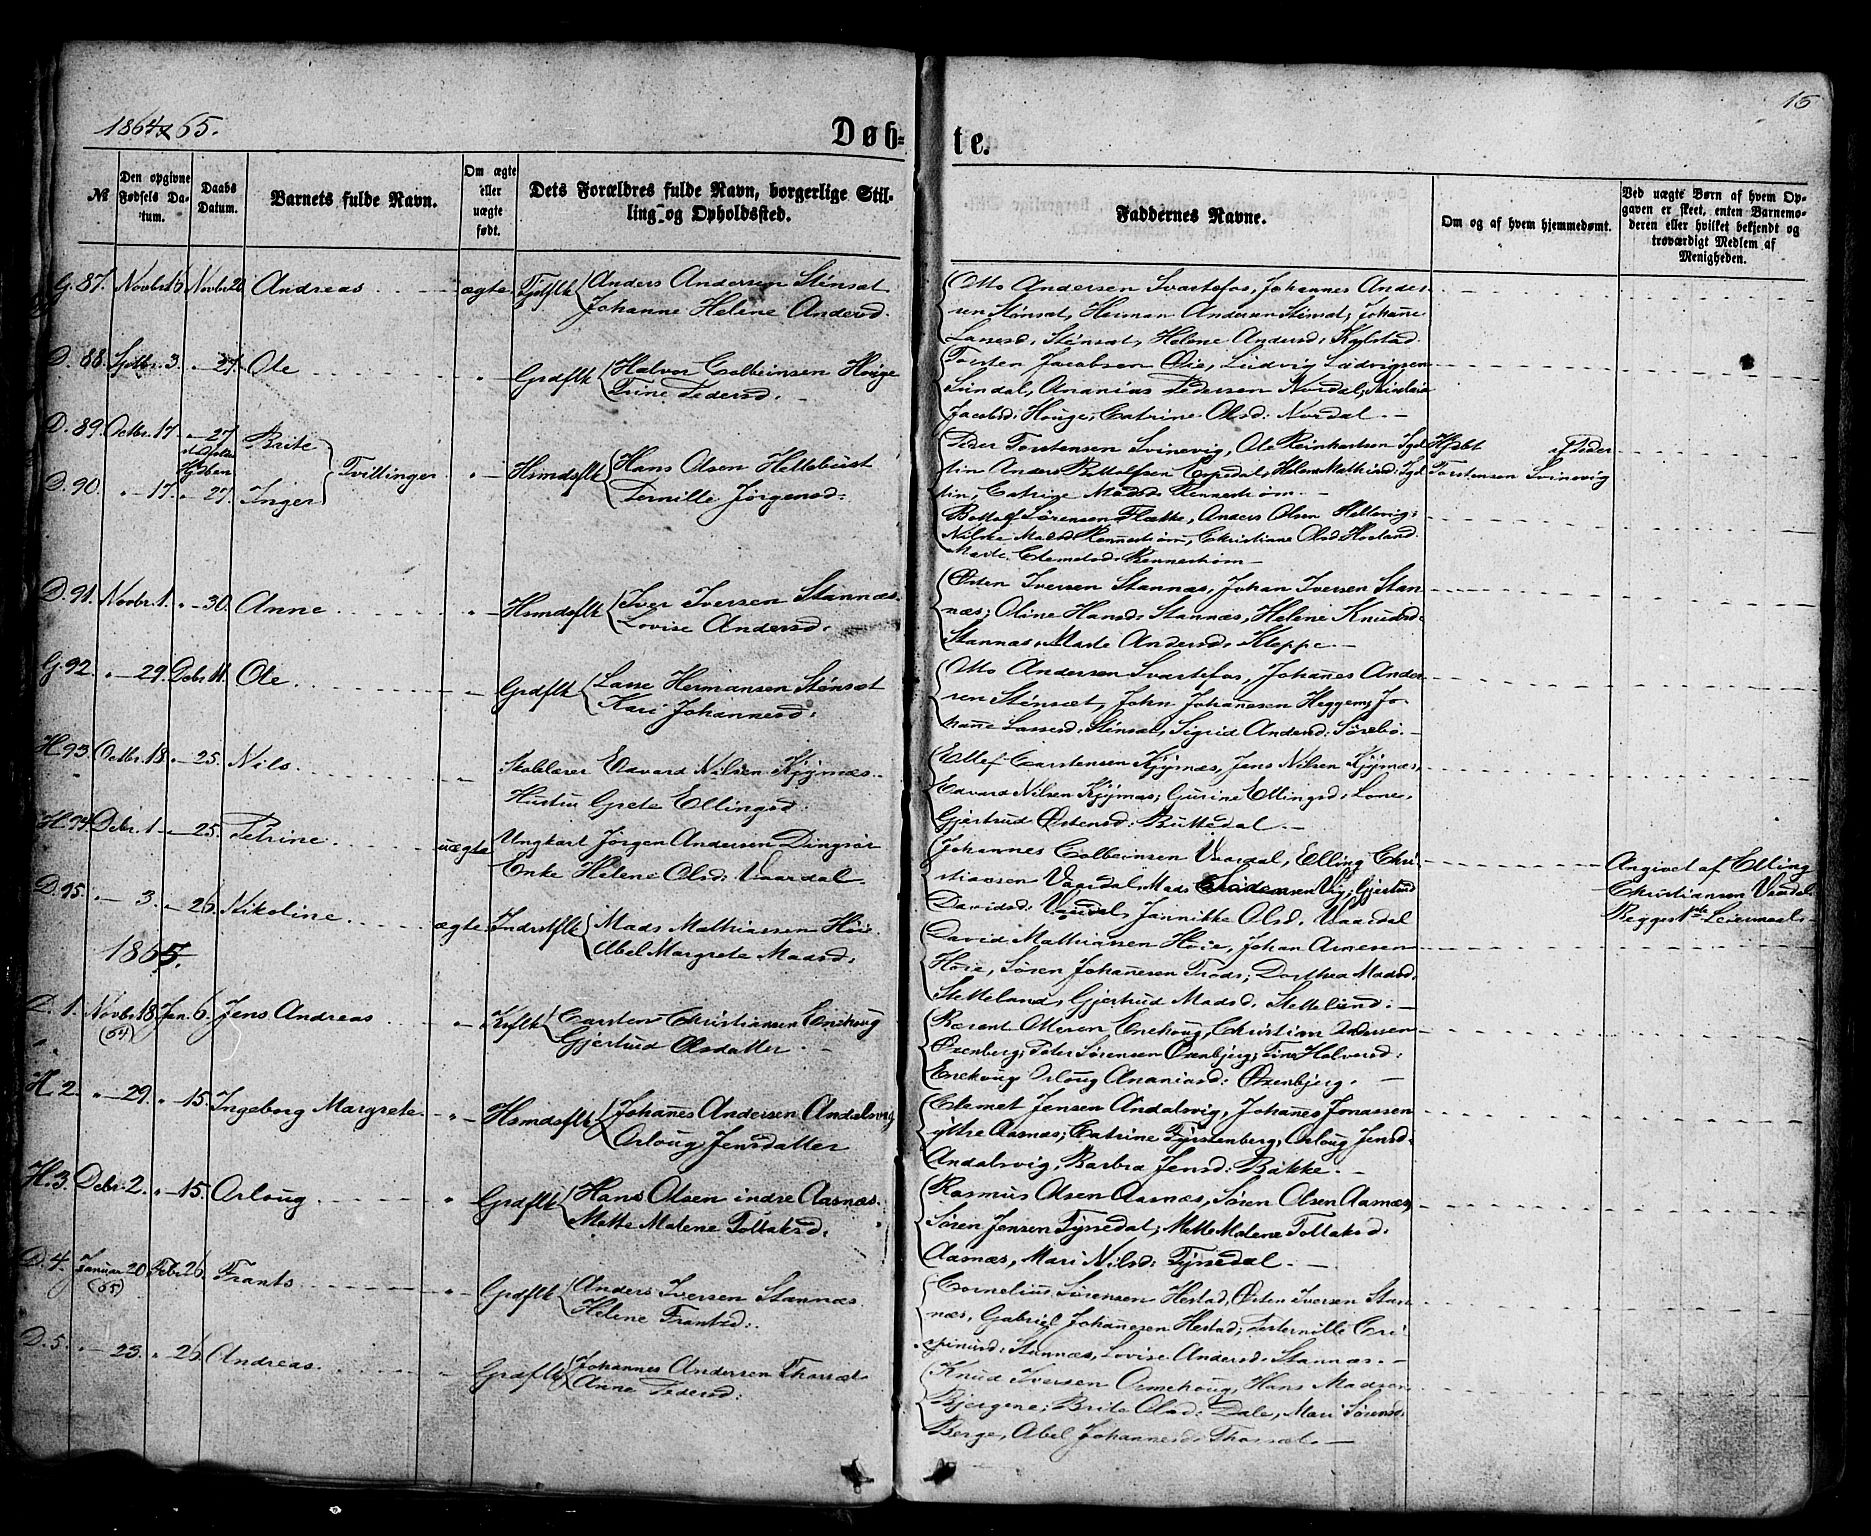 1864 & 65.
Døb-
te.
15
№
Den opgivne Fødsels Datum.
Daabs Datum.
Barnets fulde Navn.
Om ægte eller uægte født.
Dets Forældres fulde Navn, borgerlige Stilling og Opholdssted.
Faddernes Navne.
Om og af hvem hjemmedømt.
Ved uægte Børn af hvem Opgaven er skeet, enten Barnemoderen eller hvilket bekjendt og troværdigt Medlem af Menigheden.
G. 87. Novbr. 16 Novbr. 20 Andreas ægte Anders Andersen Stensæt
Johanne Helene Andersd.
Otto Andersen Svartefos, Johannes Ander-
sen Stensæt, Herman Andersen Stensæt, Johanne
Lassesd. Stensæt, Helene Andersd. Kalstad
D. 88. Septbr. 3. " 27. Ole " Grdflk Halvor Colbeinsen Hovge
Trine Pedersd.
Torsten Jacobsen Oie, Ludvig Ludvigsen
Sundal, Ananias Pedersen Nordal,
Jacobsd. Houge, Catrine Olsd. Nordal.
D. 89. Octbr. 17. " 27 Brite
D. 90. " 17. " 27. Inger
Tvillinger
" Hsmdsflk Hans Olsen Hellebust
Pernille Jørgensd.
Peder Torstensen Svinevig, Ole Reinhartsen
Anders Bottolfsen Espedal, Helene Mathiasd.
Catrine Madsd. Rennestrøm.
Hjdbt af Peder
Torstensen Svinevig
Bottolf Sørensen Flekke, Anders Olsen Hellevig;
Madsd. Rennestrøm, Christiane Olsd. Hovland
Marte Clemetsd. Rennestrøm
D. 91. Novbr. 1. " 30. Anne " Hsmdsflk Iver Iversen Stannæs.
Lovise Andersd.
Østen Iversen Stannæs, Johan Iversen Stan-
næs; Oline Hansd. Stannæs, Helene Knudsd.
Stannæs, Marte Andersd. Kleppe.
G. 92. " 29. Debr. 11. Ole " Grdflk Lasse Hermansen Stensæt
Kari Johannesd.
Otto Andersen Svartefos, Johannes Ander-
sen Stensæt, John Johanesen Heggem; Jo-
hanne Lassesd. Stensæt, Sigrid Andersd. Sørebø.
H. 93. Octbr. 18. " 25. Nils. " Skolelærer Edvard Nilsen Kjyrnæs.
Hustru Grete Ellingsd.
Ellef Carstensen Kjyrnæs, Jens Nilsen Kjyrnæs,
Edvard Nilsen Kjyrnæs; Gurine Ellingsd. Lone,
Gjertrud Østensd. Buttedal.
H. 94. Debr. 1. " 25. Petrine. uægte Ungkarl Jørgen Andersen Dingsør
Enke Helene Olsd. Vaardal.
Johannes Colbeinsen Vaardal, Elling Chri-
stiansen Vaardal, Mads Vig; Gjertrud
Davidsd. Vardal, Jannikke Olsd. Vaardal
Angivet af Elling
Christiansen Vardal
Begges 1ste Leiermaal.
D. 95. " 3. " 26. Nikoline. ægte Indrstflk Mads Mathiassen Høie
Abel Margrete Madsd.
David Mathiassen Høie, Johan Arnesen
Høie, Søren Johanesen Trods; Dorthea Madsd.
Stetteland, Gjertrud Madsd. Stetteland.
1865.
D. 1. Novbr. 18 (64) Jan. 6. Jens Andreas " Carsten Christiansen Enehoug
Gjertrud Olsdatter
Berent Ottersen Enehoug, Christian Andersen
Oxenberg; Peter Sørensen Oxenbjerg; Halvorsd.
Enehoug, Orloug Ananiasd. Oxenbjerg.
H. 2. " 29. " 15. Ingeborg Margrete " Hsmdsflk Johanes Andersen Andalsvig
Orloug Jensdatter
Clemet Jensen Andalsvig, Johanes Jonassen
yttre Aasnæs; Catrine Fyrstenberg, Orloug Jensd.
Andalsvig, Barbra Jensd. Bakke.
H. 3. Debr. 2. " 15. Orloug " Grdflk Hans Olsen indre Aasnæs.
Mette Malene Tollaksd.
Rasmus Olsen Aasnæs, Søren Olsen Aasnæs,
Søren Jensen Tyssedal; Mette Malene Tollaksd.
Aasnæs, Mari Nilsd. Tyssedal.
D. 4. Januar 20 (65) Febr. 26. Frants " Grdflk Anders Iversen Stannæs.
Helene Frantsd.
Cornelius Sørensen Hestad, Østen Iversen Stan-
næs, Gabriel Johanesen Hestad; Pernille Cri-
spinusd. Stannæs, Lovise Andersd. Stannæs.
D. 5. " 23. " 26. Andreas. " Grdflk Johannes Andersen Thorsæt
Anne Pedersd.
Knud Iversen Ormehoug, Hans Madsen
Bjergene; Brite Olsd. Dale, Mari Sørensd.
Berge, Abel Johannesd. Thorsæt.